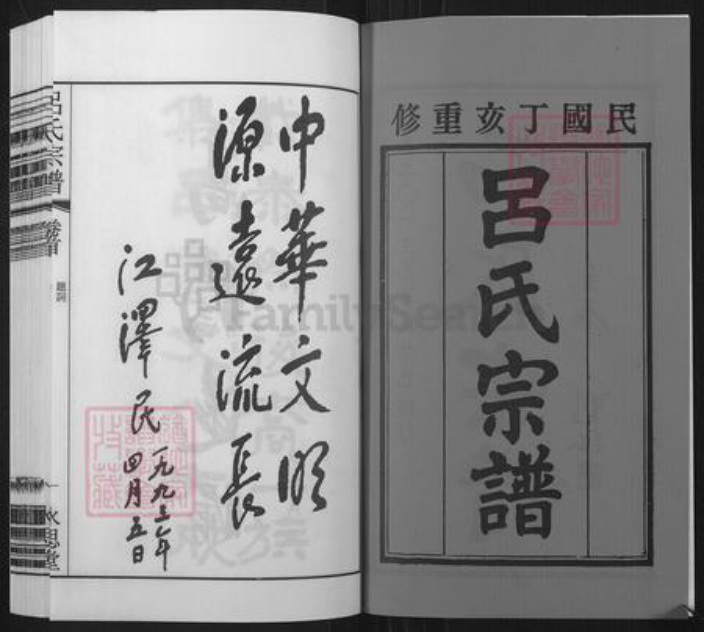 民國丁亥重修
呂氏宗譜
中華文明
源遠流長
江澤民
一九九三年
四月五日
呂氏宗譜
卷首
題詞
一
永思堂
FamilySearch